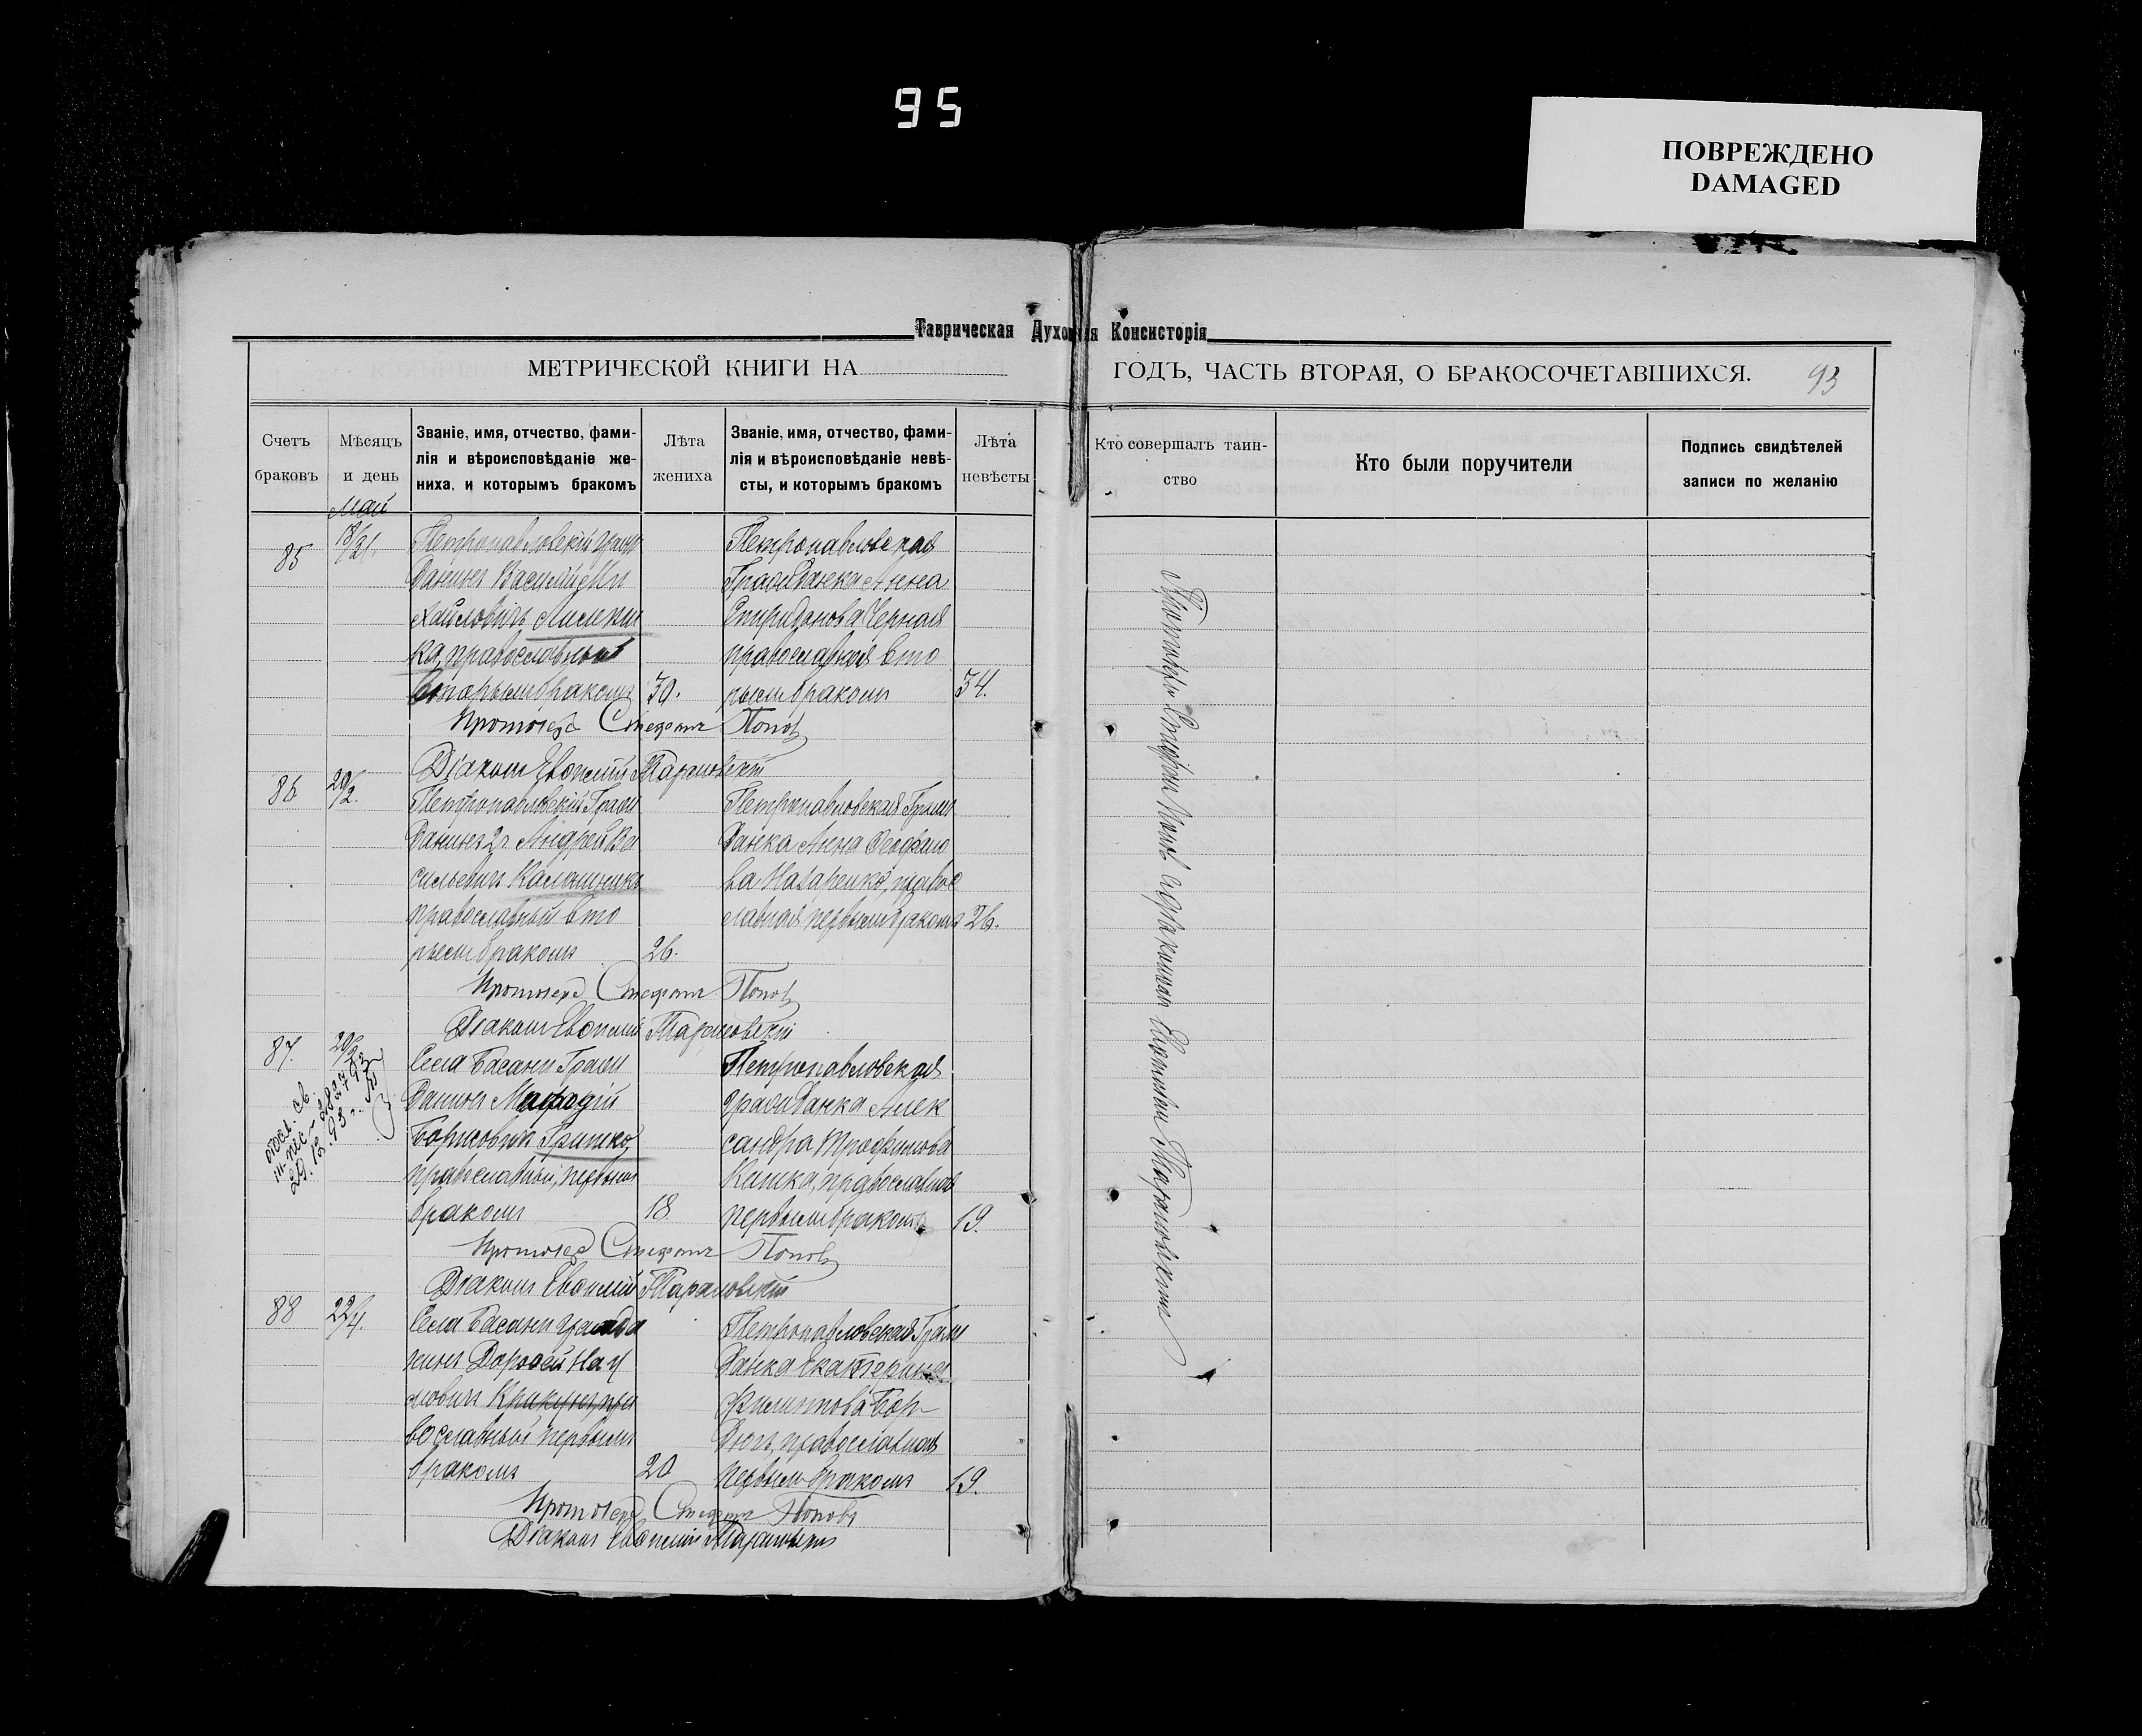 95
ПОВРЕЖДЕНО
DAMAGED
Таврическая Духовная Консисторія
МЕТРИЧЕСКОЙ КНИГИ НА
ГОДЪ, ЧАСТЬ ВТОРАЯ, О БРАКОСОЧЕТАВШИХСЯ.
93
Счетъ браковъ
Мѣсяцъ и день
Званіе, имя, отчество, фами-
лія и вѣроисповѣданіе же-
ниха, и которымъ бракомъ
Лѣта жениха
Званіе, имя, отчество, фами-
лія и вѣроисповѣданіе невѣ-
сты, и которымъ бракомъ
Лѣта невѣсты
Кто совершалъ таин-
ство
Кто были поручители
Подпись свидѣтелей
записи по желанію
Май
85
18/21.
Петропавловскій граж
данинъ Василій Ми
хайловичъ
ка, православный
вторымъ бракомъ
30.
Петропавловская
Гражданка Анна
Спиридонова Черная
православная вто
рымъ бракомъ
34.
Протоіерей Стефанъ Поповъ
Діаконъ Евѳимій Тарановскій
86.
20/2.
Петропавловскій Граж
данинъ 2г. Андрей Ва
сильевичъ Калашникъ
православный вто
рымъ бракомъ
26.
Петропавловская Граж
данка Анна
ва Назаренко, правос
лавная первымъ бракомъ
26.
Протоіерей Стефанъ Поповъ
Діаконъ Евѳимій Тарановскій
87.
Села Басани Граж
данинъ
Борисовичъ Гришко,
православный, первымъ
бракомъ
18.
Петропавловская
гражданка Алек
сандра Трофимова
православная
первымъ бракомъ
19.
Протоіерей Стефанъ Поповъ
Діаконъ Евѳимій Тарановскій
88
22/4.
Села Басани гражда
нинъ Дороѳей Нау
мовичъ Крикунъ, пра
вославный первымъ
бракомъ
20
Петропавловская Граж
данка Екатерина
Филиппова Бон-
дюгъ, православная
первымъ бракомъ
19.
Протоіерей Стефанъ Поповъ
Діаконъ Евѳимій Тарановскій
Протоіерей Стефанъ Поповъ съ діакономъ Евѳиміемъ Тарановскимъ